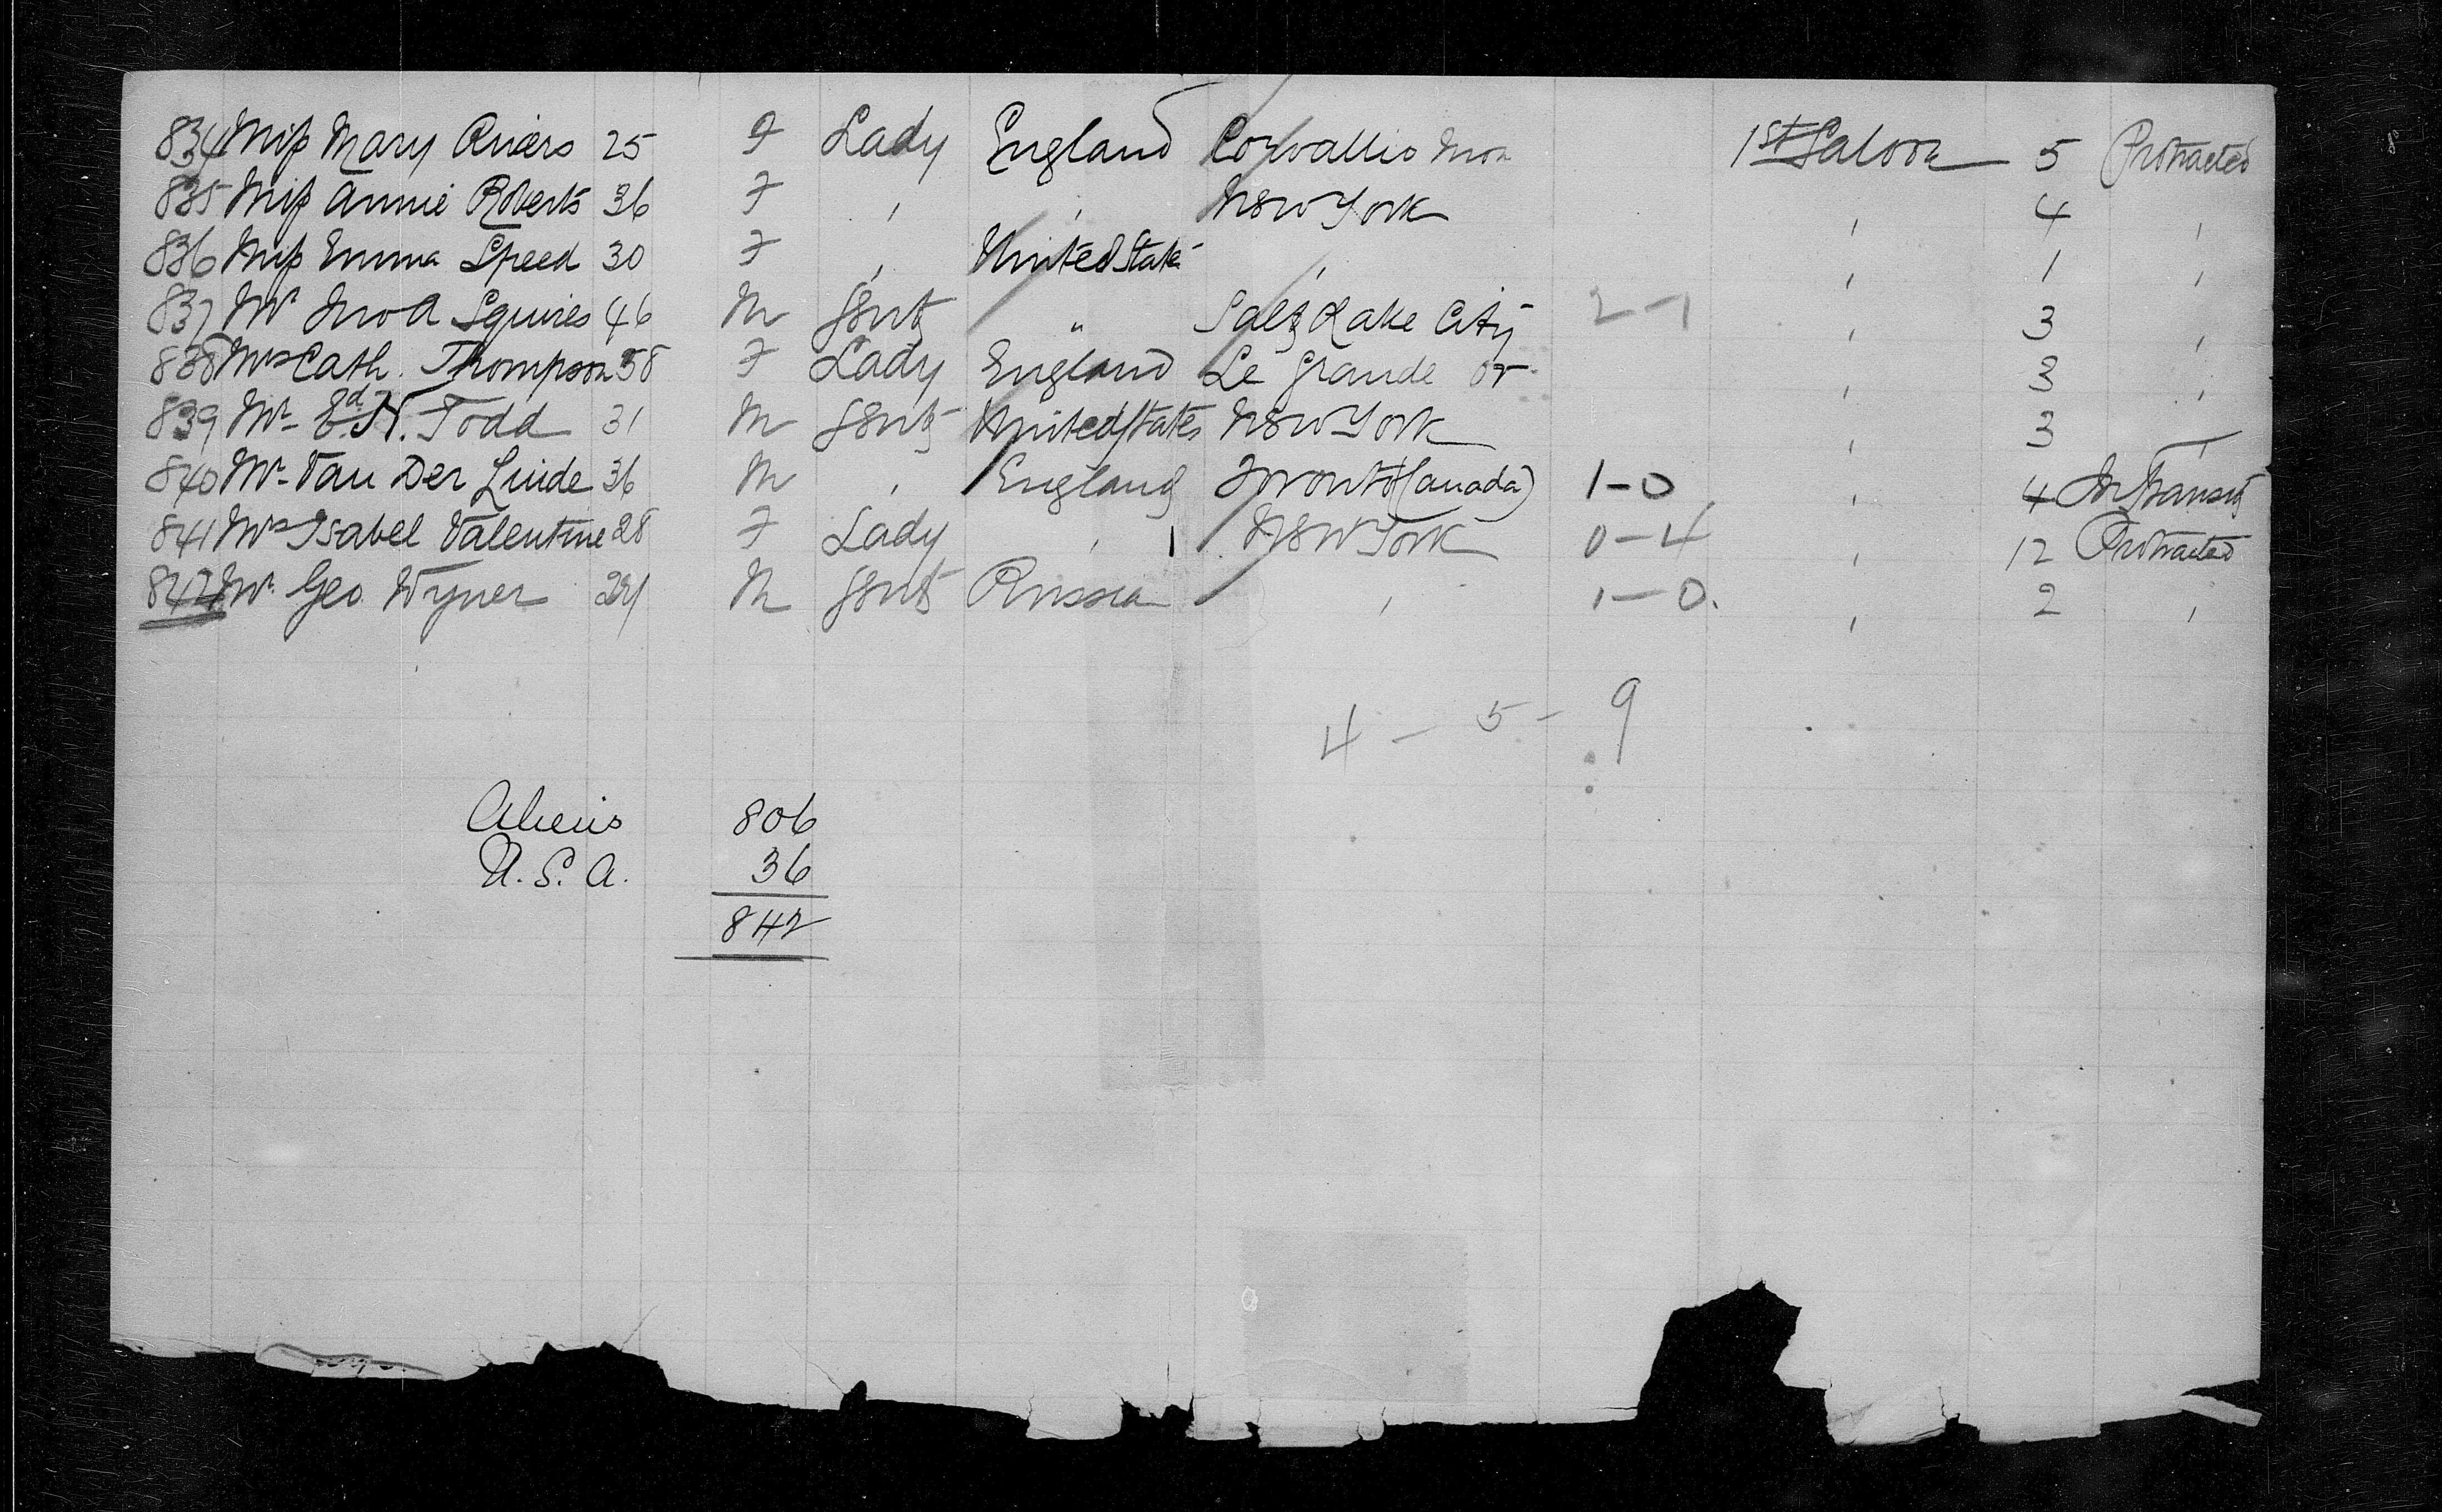 834 Miss Mary Rivers 25 F Lady England Corvallis Mon 1st Saloon 5 Protracted
835 Miss Annie Roberts 36 F , , New York , 4 ,
836 Miss Emma Speed 30 F , United States , , 1 ,
837 Mr Jno A Squires 46 M Gent " Salt Lake City 2-1 , 3 ,
838 Mrs Cath. Thompson 58 F Lady England Le Grande Or , 3 ,
839 Mr Ed. H. Todd 31 M Gent United States New York , 3 ,
840 Mr Van Der Linde 36 M , England Toronto (Canada) 1-0 , 4 In Transit
841 Mrs Isabel Valentine 28 F Lady , New York 0-4 , 12 Protracted
842 Mr. Geo. Wyner 24 M Gent Russia , 1-0. , 2 ,
4 - 5 - 9
Aliens 806
U.S.A. 36
842